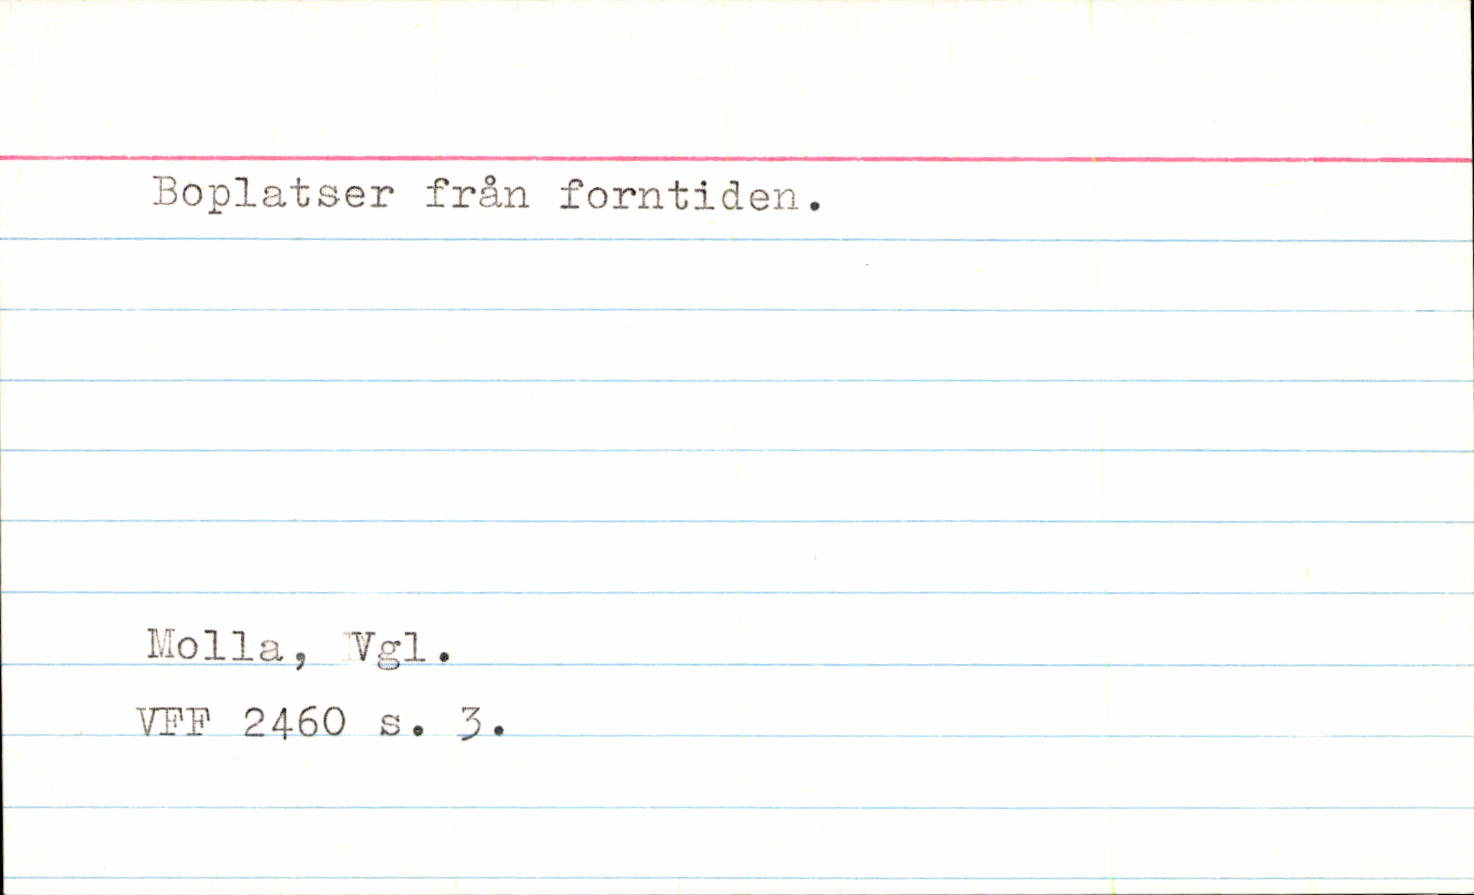 Boplatser från forntiden.
Molla, Vgl.
VFF 2460 s. 3.